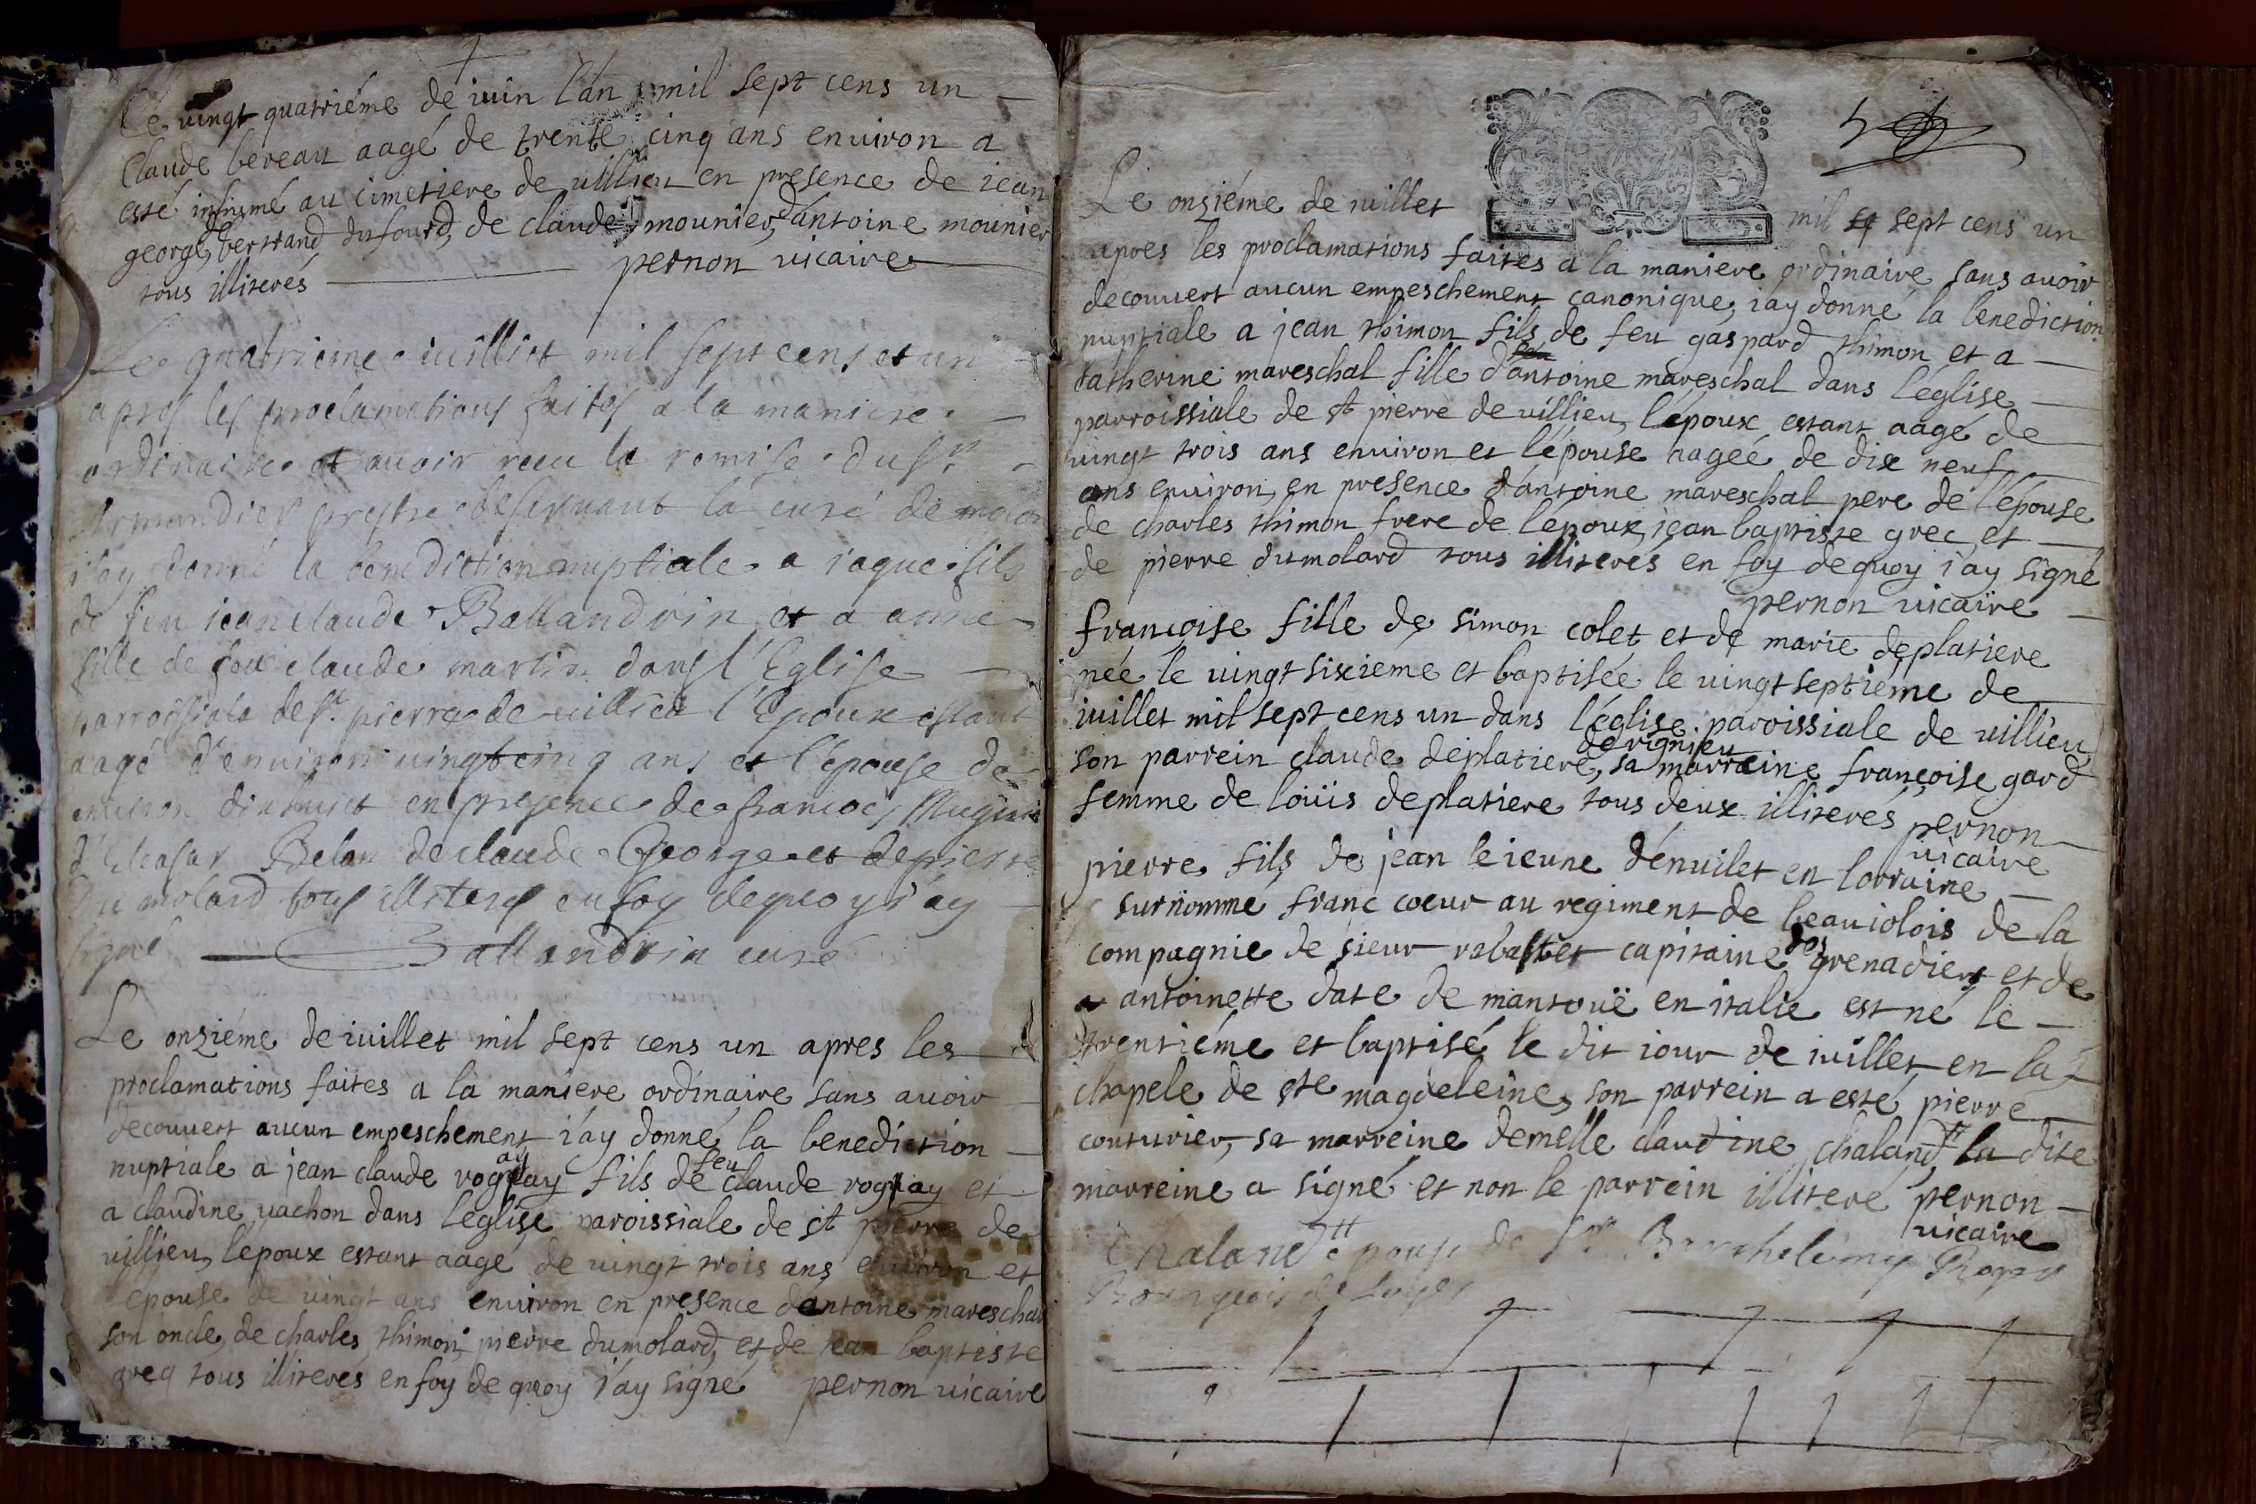 Le vingt quatriéme de iuin l'an mil sept cens un
Claude bereau aagé de trente cinq ans environ a
esté inhumé au cimetiere de villieu en presence de iean
george, de bertrand dufourd, de claude mounier, d'antoine mounier
tous illiterés pernon vicaire
Le quatrieme iuilliet mil sept cens et un
apres les proclamations faites a la maniere
ordinaire et avoir receu la remise du Sr
prestre desservant la cure de
i'ay donné la benediction nuptiale a iaque fils
de feu iean claude Ballandrin et a anne
fille de feu claude martin dans l'Eglise
parroissiale de st pierre de villieu l'Epoux estant
aagé d'environ vingt cinq ans et l'epouse de
environ dixhuict en presence de francois
Belan de claude George et de pierre
Du molard tous illiterés en foy dequoy i'ay
signé Ballandrin curé
Le onziéme de iuillet mil sept cens un apres les
proclamations faites a la maniere ordinaire sans avoir
decouvert aucun empeschement i'ay donné la benediction
nuptiale a jean claude fils de feu claude et
a claudine vachon dans l'eglise paroissiale de st pierre de
villieu, l'epoux estant aagé de vingt trois ans environ et
epouse de vingt ans environ en presence d'antoine mareschal
son oncle, de charles thimon, pierre dumolard, et de iean baptiste
greq tous illiterés en foy de quoy i'ay signé pernon vicaire
Le onziéme de iuillet mil sept cens un
apres les proclamations faites a la maniere ordinaire sans avoir
decouvert aucun empeschement canonique, i'ay donné la benediction
nuptiale a jean thimon fils de feu gaspard thimon et a
catherine mareschal fille d'antoine mareschal dans l'église
parroissiale de st pierre de villieu, l'époux estant aagé de
vingt trois ans environ et l'épouse aagée de dix neuf
ans environ, en presence d'antoine mareschal pere de l'épouse
de charles thimon frere de l'époux, iean baptiste grec, et
de pierre dumolard tous illiterés en foy dequoy i'ay signé
pernon vicaire
françoise fille de simon colet et de marie deplatiere
née le vingt sixieme et baptisée le vingt septième de
iuillet mil sept cens un dans l'église paroissiale de villieu
son parrein claude deplatiere de rignieu, sa marreine françoise gard
femme de loüis deplatiere tous deux illiterés pernon
vicaire
pierre fils de jean le ieune d'enuilet en lorraine
surnommé franc coeur au regiment de beauiolois de la
compagnie de sieur rabastet capitaine des grenadiers et de
antoinette date de mantouë en italie est né le
trentiéme et baptisé le dit iour de iuillet en la
chapele de ste magdeleine, son parrein a esté pierre
couturier, sa marreine demelle claudine chalandtt la dite
marreine a signé et non le parrein illitere pernon
vicaire
Chalandtt epouse de Sr Barthelemy
Bourgeois de Loyes